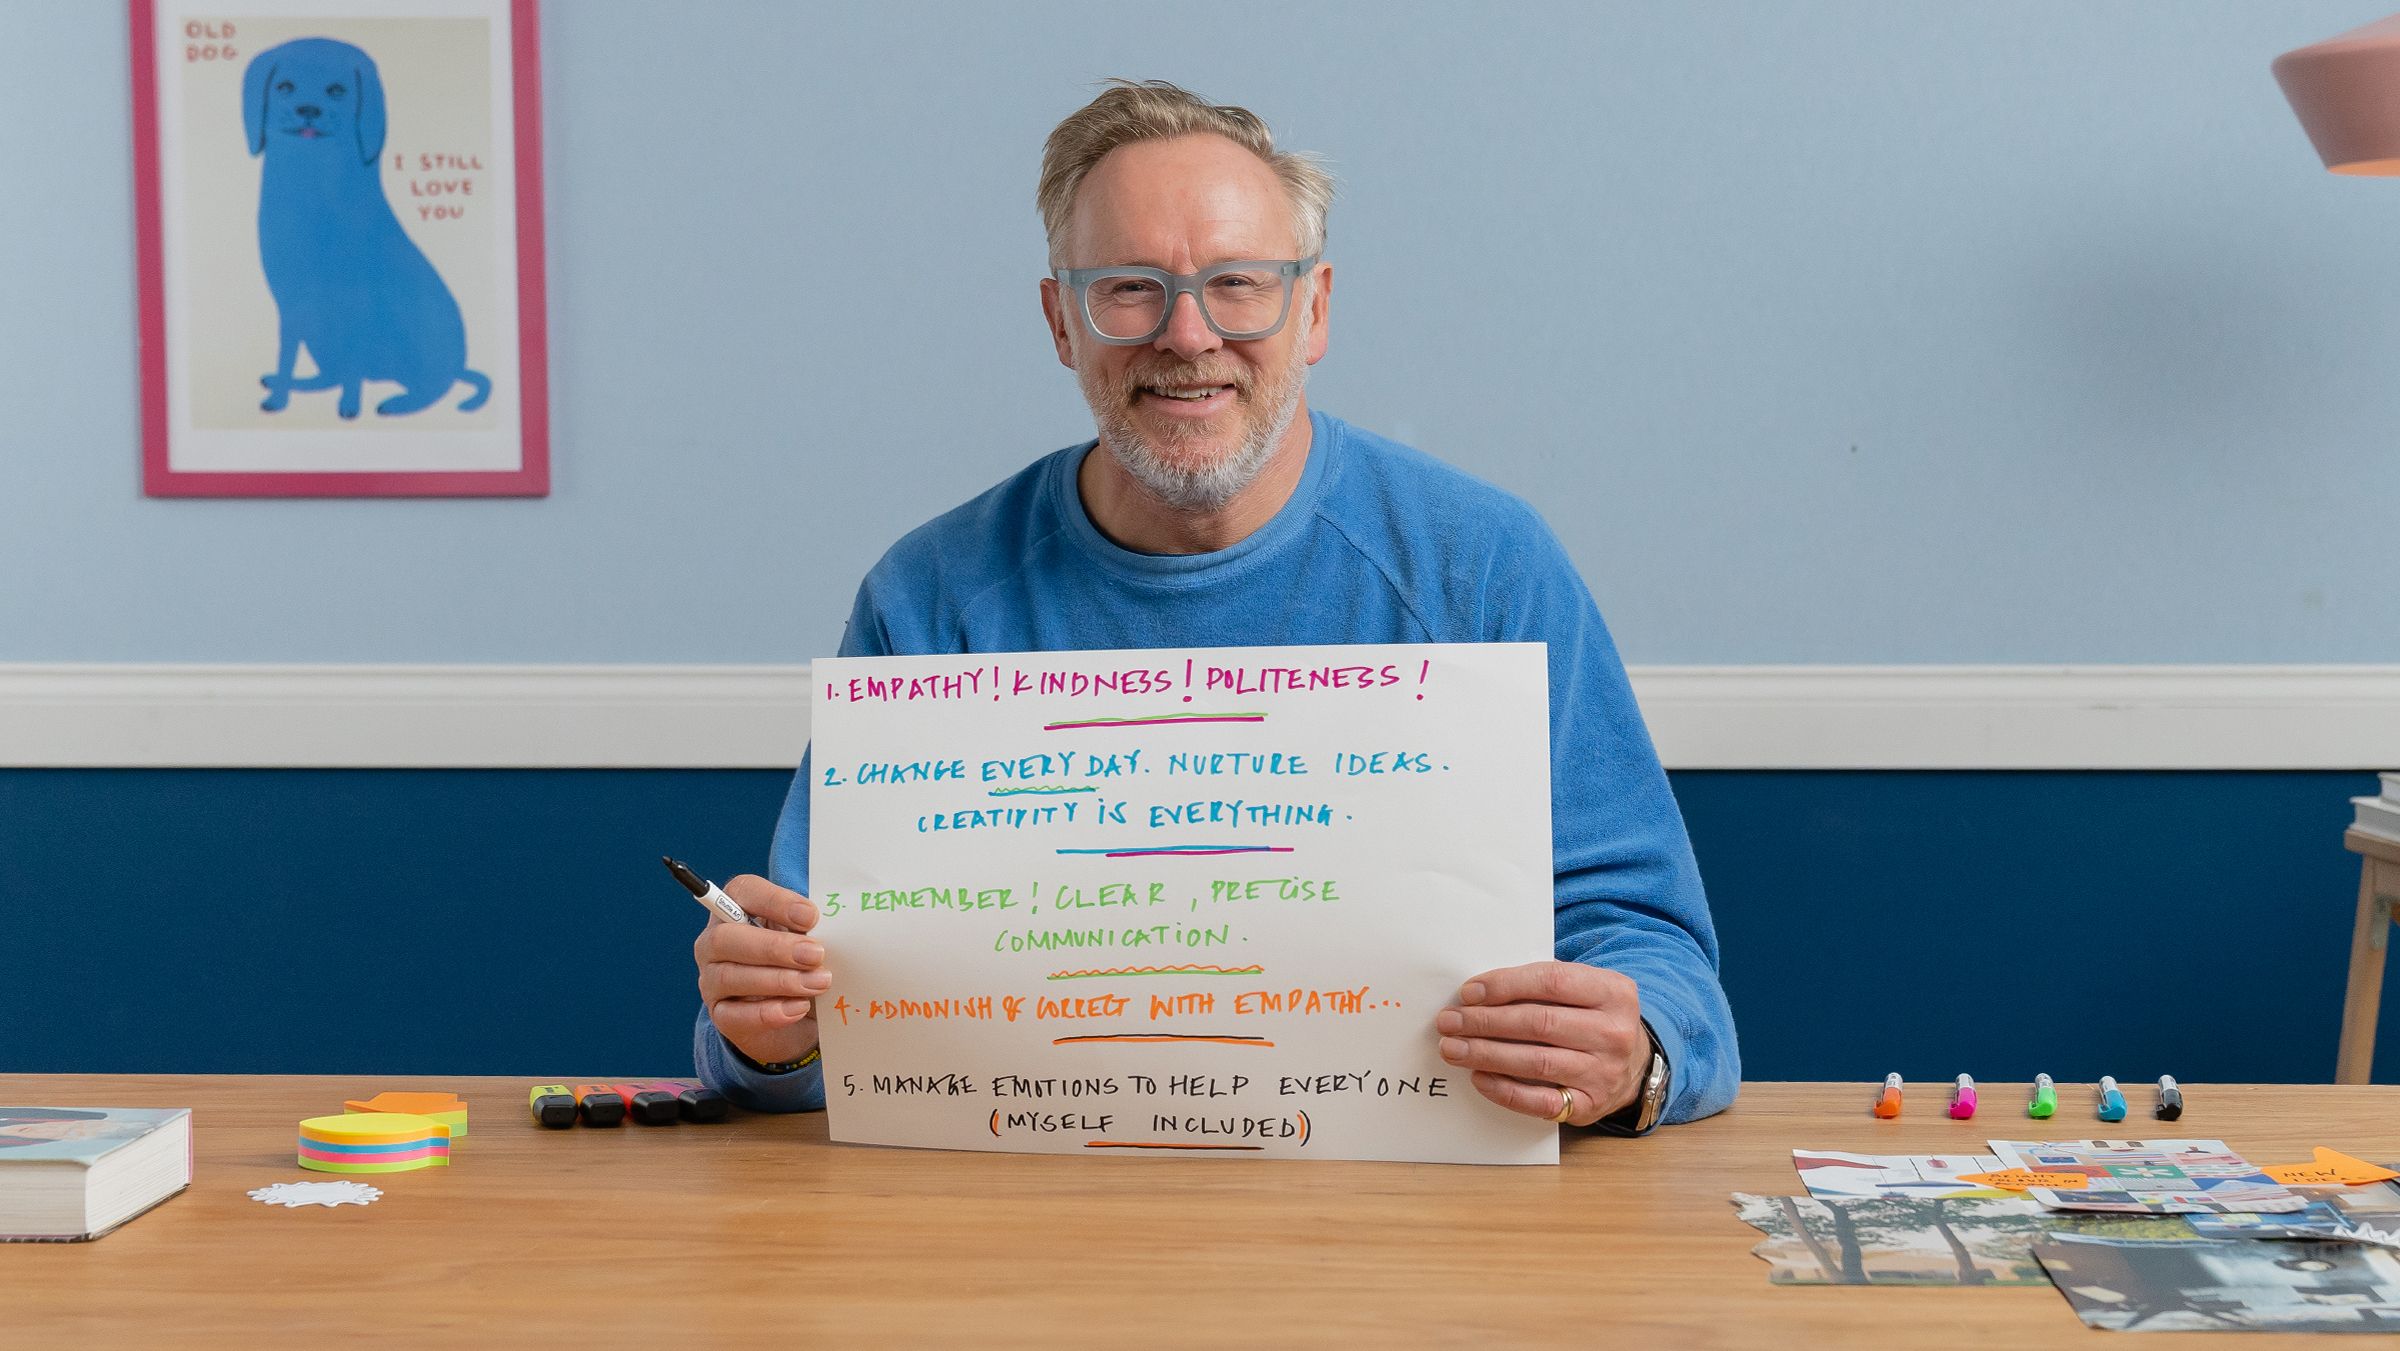 OLD
DOG
I STILL
LOVE
YOU
1. EMPATHY! KINDNESS! POLITENESS!
2. CHANGE EVERY DAY. NURTURE IDEAS.
CREATIVITY IS EVERYTHING.
3. REMEMBER! CLEAR, PRECISE
COMMUNICATION.
4. ADMONISH & CORRECT WITH EMPATHY...
5. MANAGE EMOTIONS TO HELP EVERYONE
(MYSELF INCLUDED)
NEW
IDEAS